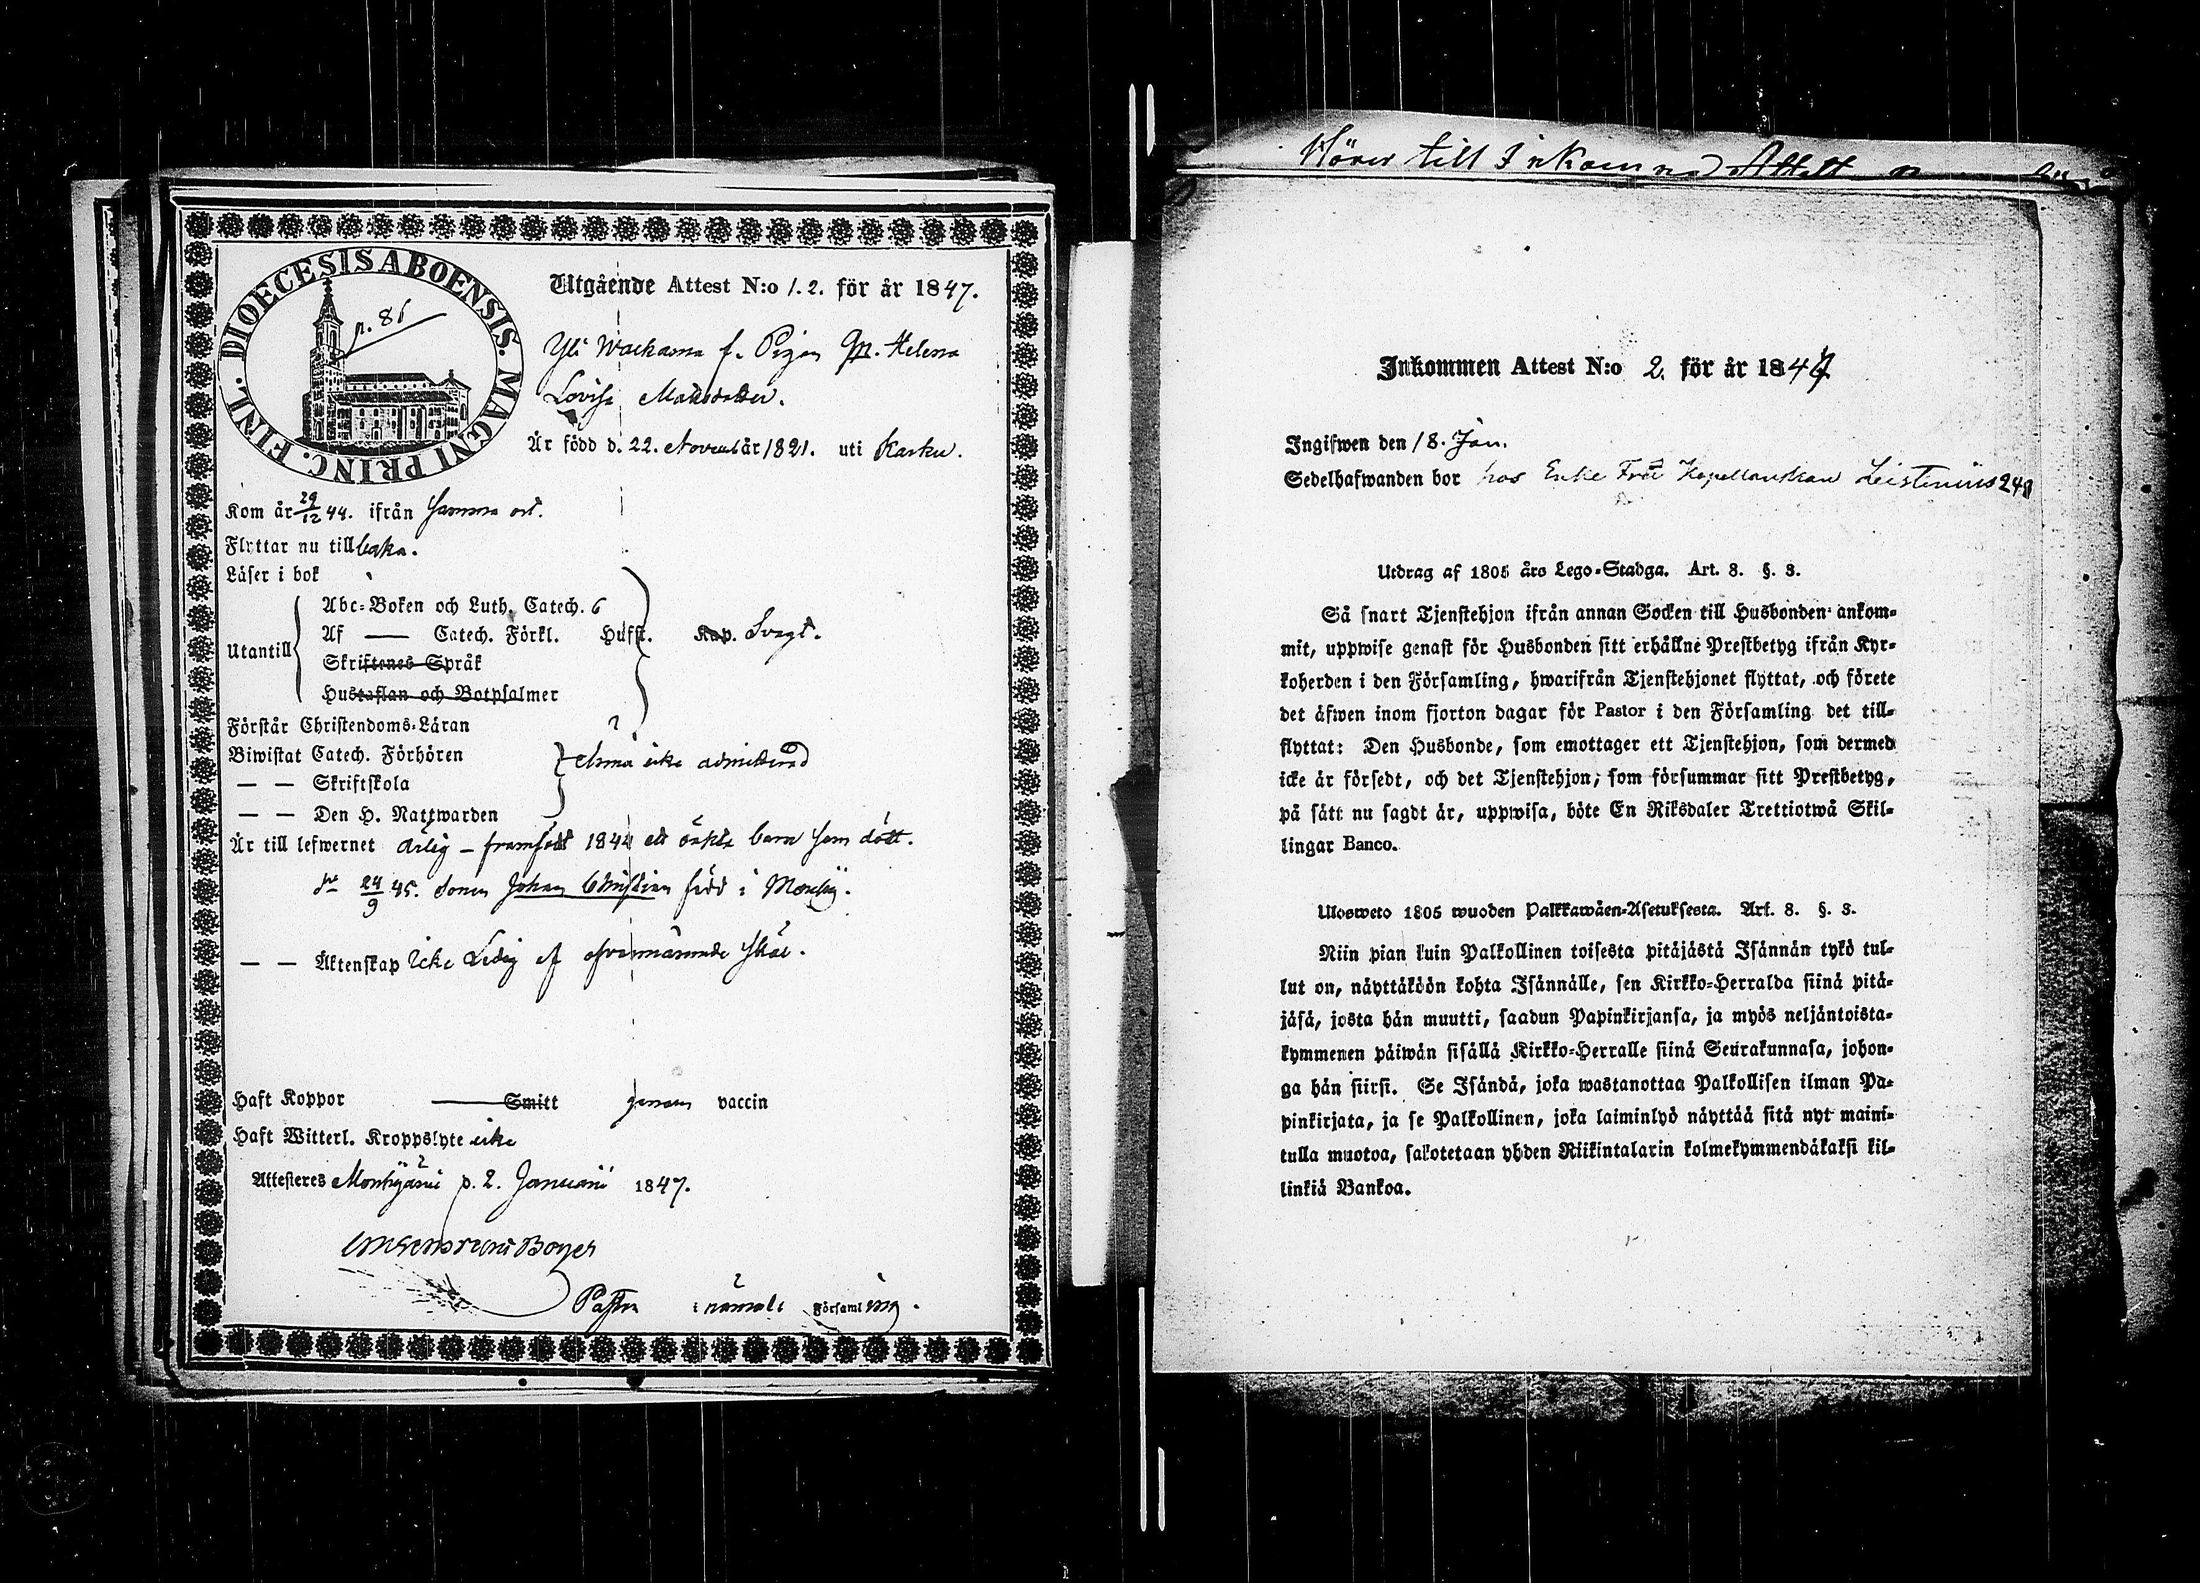 DIOECESIS ABOENSIS. MAGNI PRINC. FINL.
p. 86
Utgående Attest N:o 1. 2. för år 1847.
Yli f. Pigan Helena
Lovisa
Är född d. 22. Novemb år 1821. uti Karku.
Kom år 29/12 44. ifrån samma ort.
Flyttar nu tillbaka.
Läser i bok
Abc-Boken och Luth. Catech. 6
Af — Catech. Förkl. Hufst. Kap. Svagt.
Utantill
Skriftenes Språk
Hustaflan och Botpsalmer
Förstår Christendoms-Läran
Biwistat Catech. Förhören
— — Skriftskola
ännu icke admitterad
— — Den H. Nattwarden
Är till lefwernet ärlig – framfödt 1844 ett oäkta barn som dött.
24/9 45. sonen Johan Christian född i
— — Äktenskap icke Ledig af ofvannämnde skäl.
Haft Koppor — Smitt genom vaccin
Haft Witterl. Kroppslyte icke
Attesteres d. 2. Januarii 1847.
Pastor i nämnde Församling.
Hörer till Inkomna Attest
Inkommen Attest N:o 2. för år 1847
Ingifwen den 18. Jan.
Sedelhafwanden bor hos Enke Fru Kapellanskan Leistenius 248
Utdrag af 1805 års Lego-Stadga. Art. 8. §. 3.
Så snart Tjenstehjon ifrån annan Socken till Husbonden ankom-
mit, uppwise genast för Husbonden sitt erhållne Prestbetyg ifrån Kyr-
koherden i den Församling, hwarifrån Tjenstehjonet flyttat, och förete
det äfwen inom fjorton dagar för Pastor i den Församling det till-
flyttat: Den Husbonde, som emottager ett Tjenstehjon, som dermed
icke är försedt, och det Tjenstehjon, som försummar sitt Prestbetyg,
på sätt nu sagdt är, uppwisa, böte En Riksdaler Trettiotwå Skil-
lingar Banco.
Ulosweto 1805 wuoden Palkkawäen-Asetuksesta. Art. 8. §. 3.
Niin pian kuin Palkollinen toisesta pitäjästä Isännän tykö tul-
lut on, näyttäköön kohta Isännälle, sen Kirkko-Herralda siinä pitä-
jäsä, josta hän muutti, saadun Papinkirjansa, ja myös neljäntoista-
kymmenen päiwän sisällä Kirkko-Herralle siinä Seurakunnasa, johon-
ga hän siirsi. Se Isändä, joka wastanottaa Palkollisen ilman Pa-
pinkirjata, ja se Palkollinen, joka laiminlyö näyttää sitä nyt maini-
tulla muotoa, sakotetaan yhden Riikintalarin kolmekymmendäkaksi kil-
linkiä Bankoa.